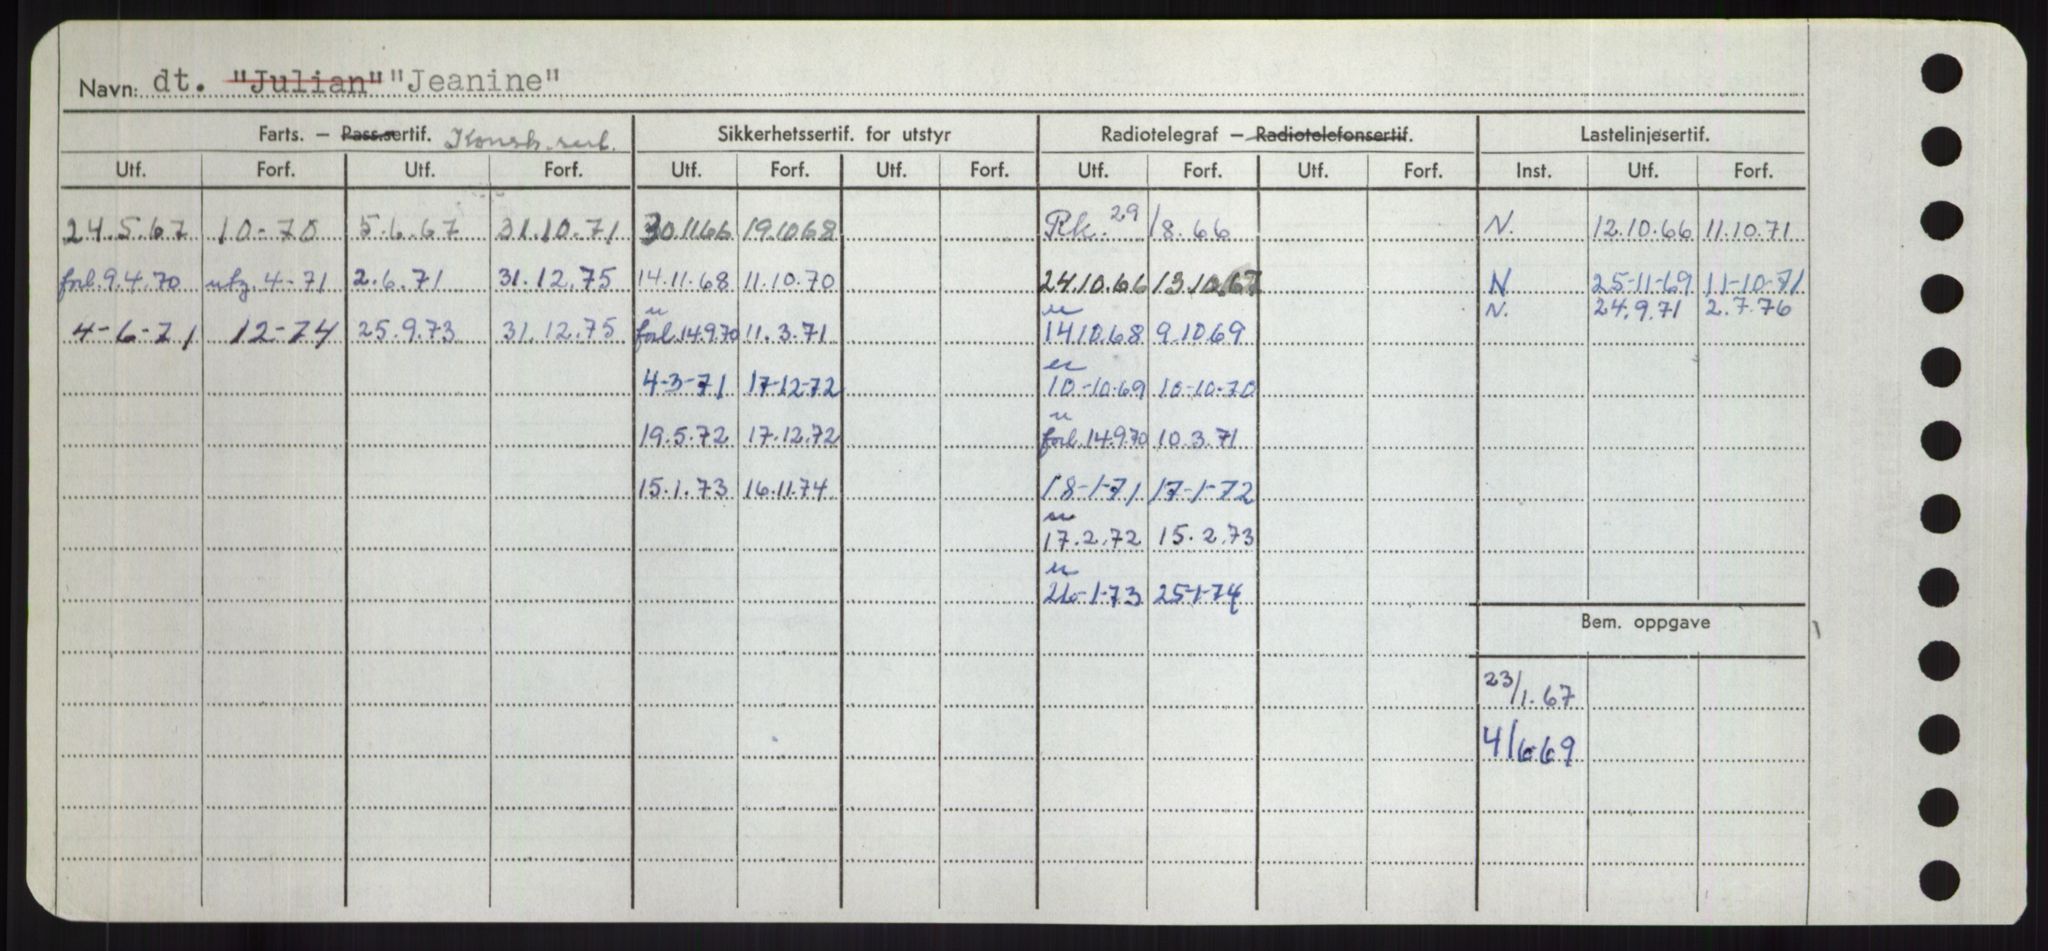 Navn: dt. "Julian" "Jeanine"
Farts. — Pass.sertif. Sikkerhetssertif. for utstyr Radiotelegraf — Radiotelefonsertif. Lastelinjesertif.
Utf. Forf. Utf. Forf. Utf. Forf. Utf. Forf. Utf. Forf. Utf. Forf. Inst. Utf. Forf.
24.5.67 10-70 5.6.67 31.10.71 30.11.66 19.10.68 Rk. 29/8.66 N. 12.10.66 11.10.71
forl. 9.4.70 utg. 4-71 2.6.71 31.12.75 14.11.68 11.10.70 24.10.66 13.10.67 N 25-11-69 11-10-71
N. 24.9.71 2.7.76
4-6-71 12-74 25.9.73 31.12.75 forl. 14.9.70 11.3.71 14.10.68 9.10.69
4-3-71 17-12-72 10-10-69 10-10-70
19.5.72 17.12.72 forl. 14.9.70 10.3.71
15.1.73 16.11.74 18-1-71 17-1-72
17.2.72 15.2.73
26-1-73 25-1-74
Bem. oppgave
23/1.67
4/6.69